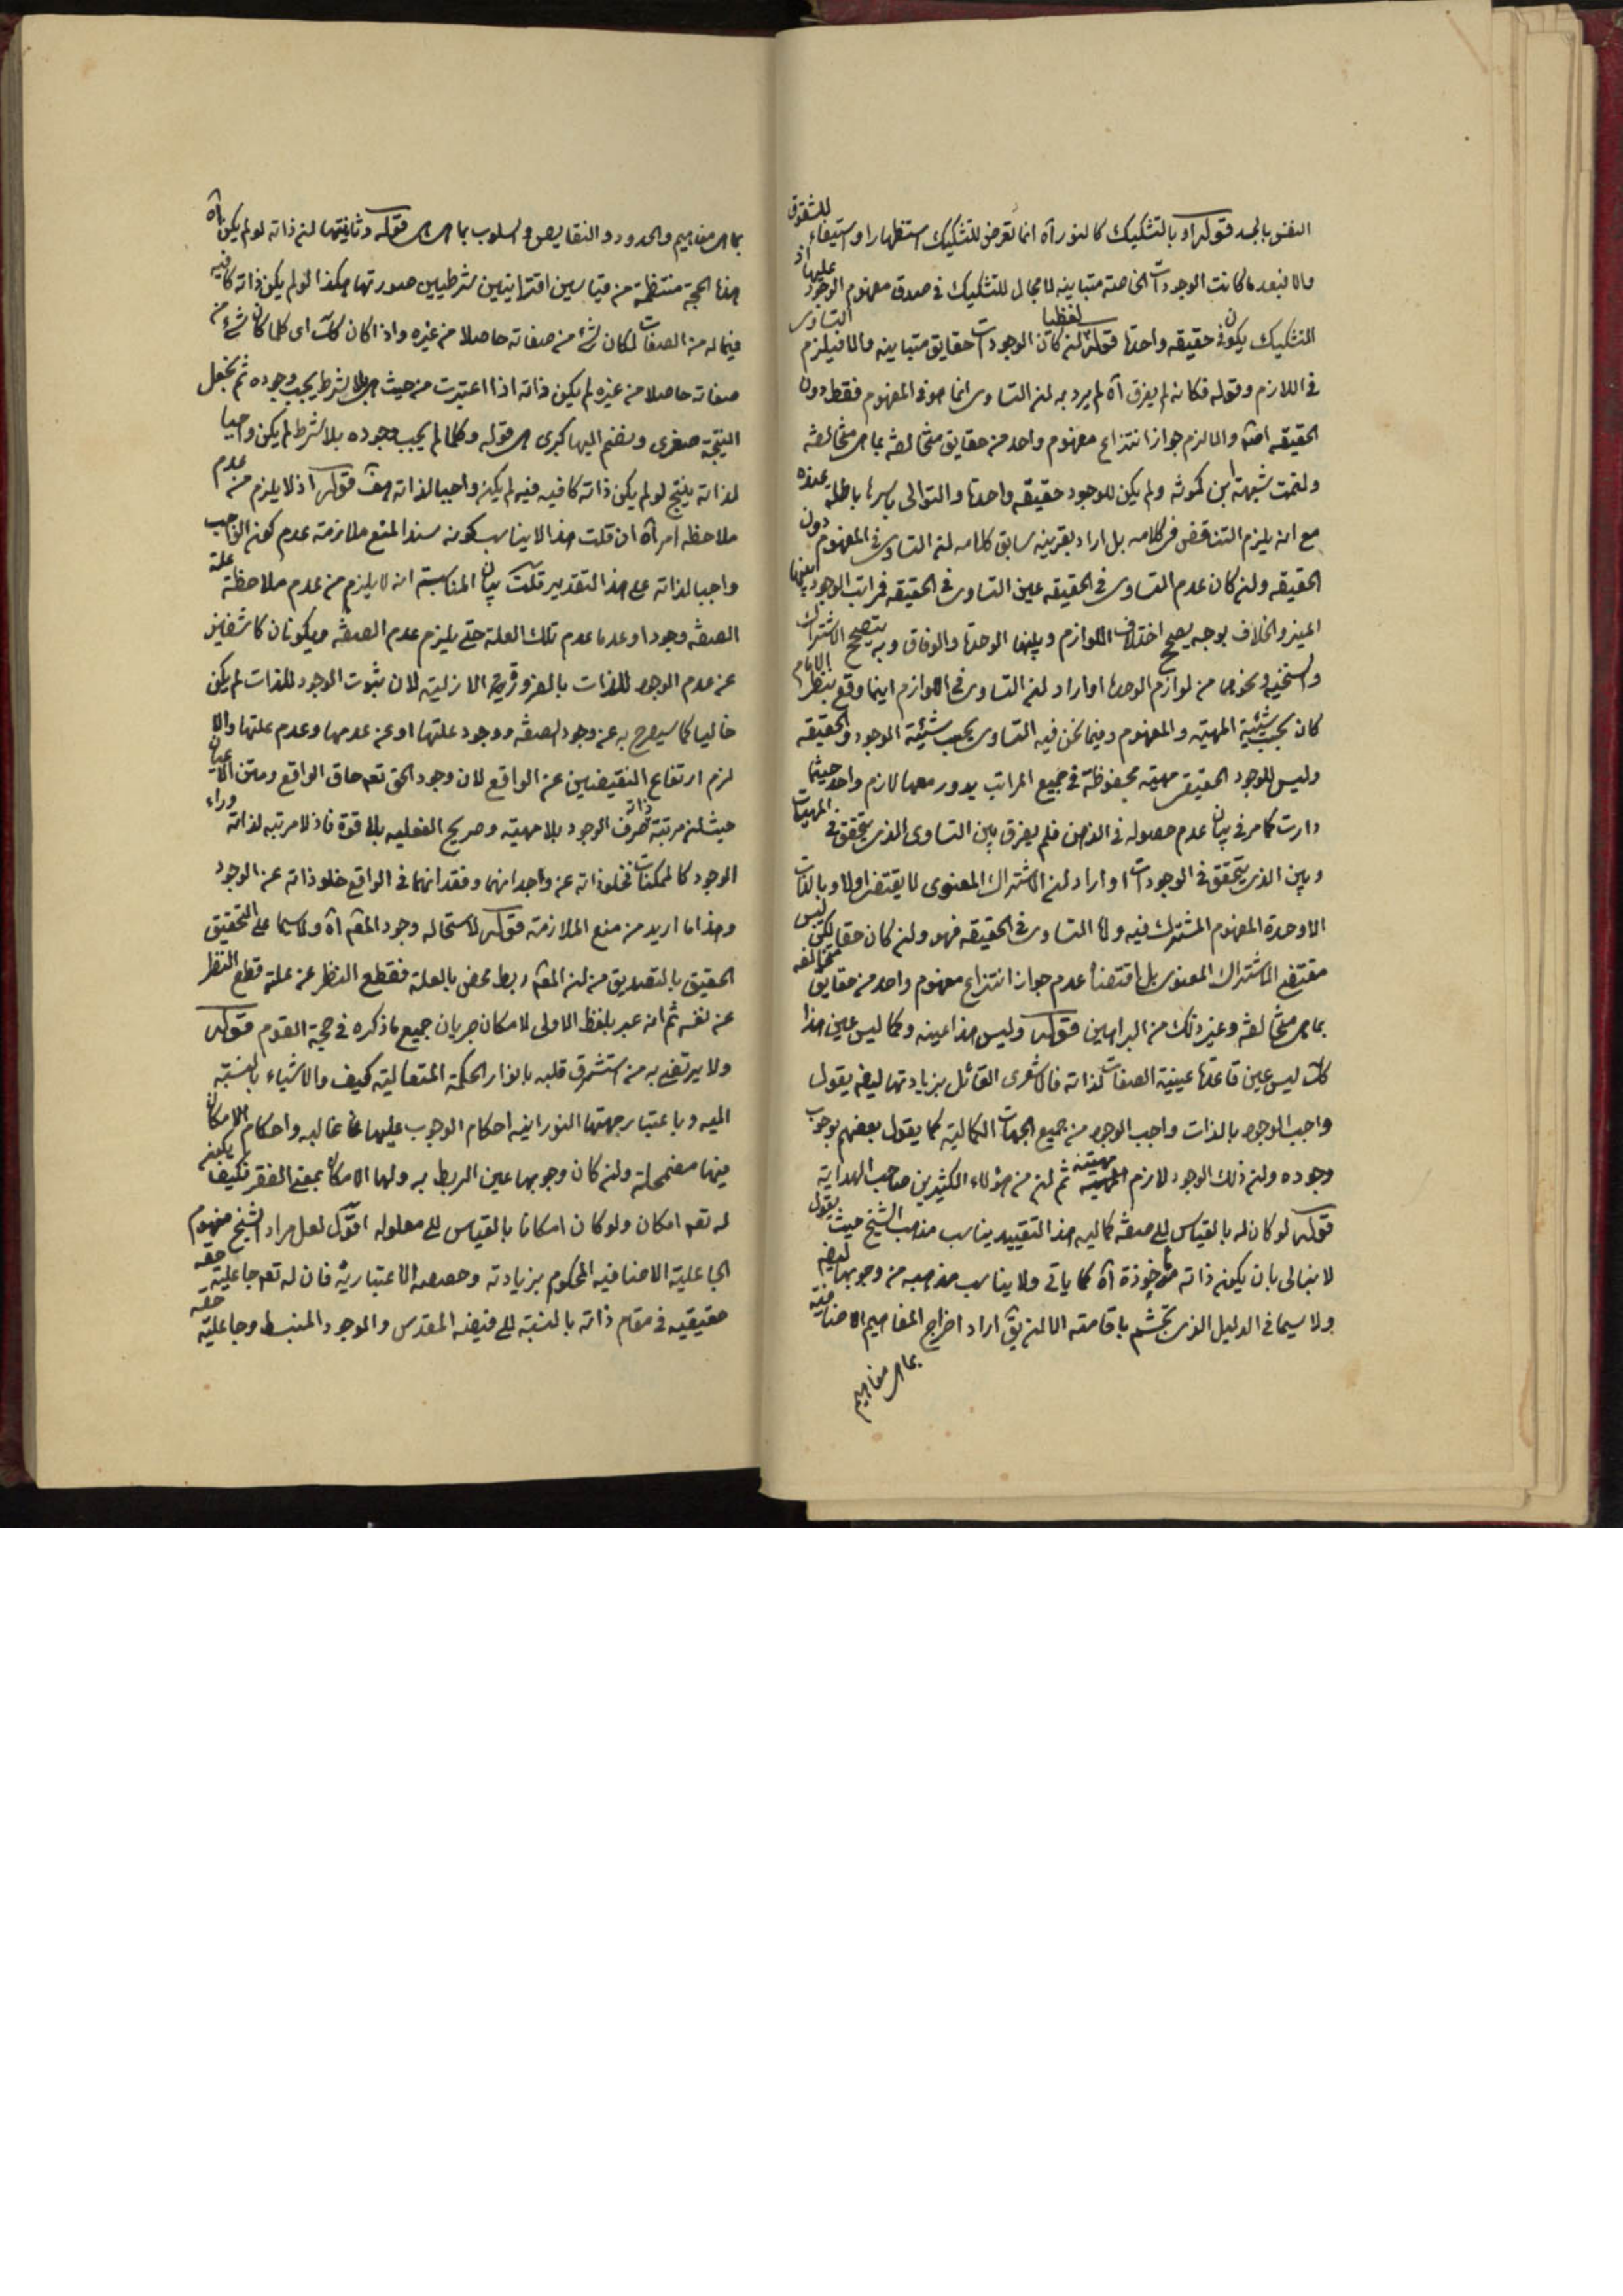 النفس بالجسد قوله او بالتشكيك كالنور آه انما تعرض للتشكيك استظهارا واستيفاء للشقوق
والا فبعد ما كانت الوجودات الخاصة متباينه لا مجال للتشكيك في صدق مفهوم الوجود عليها اذ
التشكيك يكون في حقيقه واحدة قوله لفظيا لان كانت الوجودات حقايق متباينه والا فيلزم التساوى
فى اللازم وقوله فكانه لم يفرق آه لم يرد به ان التساوى انما هو فى المفهوم فقط دون
الحقيقه والا لزم جواز انتزاع مفهوم واحد من حقايق متخالفه بما هى متخالفه
ولتمت شبهة ابن كمونه ولم يكن للوجود حقيقه واحدة والتوالى باسرها باطلة عنده
مع انه يلزم التناقض فى كلامه بل اراد بقرينه سابق كلامه ان التساوى فى المفهوم دون
الحقيقه وان كان عدم التساوى فى الحقيقه عين التساوى فى الحقيقه فمراتب الوجود بينها
الميز والخلاف بوجه يصحح اختلاف اللوازم وبينها الوحدة والوفاق وبه يتصحح الاشتراك
والسنخيه ونحوها من لوازم الوحدة او اراد ان التساوى فى اللوازم اينما وقع بنظر الامام
كان بحسب شيئية المهية والمفهوم وفيما نحن فيه التساوى بحسب شيئية الوجود والحقيقه
وليس للوجود الحقيقى مهيته محفوظة فى جميع المراتب يدور معها لازم واحد حيثما
دارت كما مر فى بيان عدم حصوله فى الذهن فلم يفرق بين التساوى الذى يتحقق فى المهيات
وبين الذى يتحقق فى الوجودات او اراد ان الاشتراك المعنوى لا يقتضى اولا وبالذات
الا وحدة المفهوم المشترك فيه واما التساوى فى الحقيقه فهو وان كان حقا لكن ليس
مقتضى الاشتراك المعنوى بل اقتضاه عدم جواز انتزاع مفهوم واحد من حقايق متخالفه
بما هى متخالفه وغير ذلك من البراهين قوله وليس هذا عينه وكما ليس عين هذا
كك ليس عين قاعدة عينية الصفات لذاته فالاشعرى القائل بزيادتها ايضا يقول
واجب الوجود بالذات واجب الوجود من جميع الجهات الكماليه كما يقول بعضهم بوجوب
وجوده وان ذلك الوجود لازم المهية مهيته ثم ان من هؤلاء الكثيرين صاحب الهداية
قوله لو كان له بالقياس الى صفه كماليه هذا التقييد يناسب مذهب الشيخ حيث يقول
لا نبالى بان يكون ذاته ماخوذة آه كما ياتى ولا يناسب مذهبه من وجوبها ايضا
ولا سيما فى الدليل الذى تجشم باقامته الا ان يق اراد اخراج المفاهيم الاضافيه
بما هى مفاهيم
بما هى مفاهيم والحدود والنقايص والسلوب بما هى هى قوله وثانيتها ان ذاته لو لم يكن آه
هذه الحجة منتظمة من قياسين اقترانيين شرطيين صورتها هكذا لو لم يكن ذاته كافيه
فيما له من الصفات لكان شئ من صفاته حاصلا من غيره واذا كان كك اى كلما كان شئ من
صفاته حاصلا من غيره لم يكن ذاته اذا اعتبرت من حيث هى بلا شرط يجب وجوده ثم نجعل
النتيجة صغرى ونضم اليها كبرى هى قوله وكلما لم يجب وجوده بلا شرط لم يكن واجبا
لذاته ينتج لو لم يكن ذاته كافيه فيه لم يكن واجبا لذاته هف قوله اذ لا يلزم من عدم
ملاحظه امر آه ان قلت هذا لا يناسب كونه سندا لمنع ملازمة عدم كون الواجب
واجبا لذاته على هذا التقدير قلت بيان المناسبة انه لا يلزم من عدم ملاحظة علة
الصفه وجودا وعدما عدم تلك العلة حتى يلزم عدم الصفه ويكونان كاشفين
عن عدم الوجود للذات بالضرورة الازلية لان ثبوت الوجود للذات لم يكن
خاليا كما سيصرح به عن وجود الصفه ووجود علتها او عن عدمها وعدم علتها والا
لزم ارتفاع النقيضين عن الواقع لان وجود الحق تعه حاق الواقع ومتن الاعيان
حيث ان مرتبة ذاته صرف الوجود بلا مهيته وصريح الفعليه بلا قوة فاذ لا مرتبه لذاته وراء
الوجود كالممكنات فخلو ذاته عن واجدانهما وفقدانهما فى الواقع خلو ذاته عن الوجود
وهذا ما اريد من منع الملازمة قوله لاستحاله وجود المعه آه ولا سيما على التحقيق
الحقيق بالتصديق من ان المعه ربط محض بالعلة فقطع النظر عن علته قطع النظر
عن نفسه ثم انه عبر بلفظ الاولى لامكان جريان جميع ما ذكره فى حجة القوم قوله
ولا يرتضى به من استشرق قلبه بانوار الحكمة المتعالية كيف والاشياء بالنسبة
اليه وباعتبار جهتها النورانيه احكام الوجوب عليها غالبه واحكام الامكان
فيها مضمحلة وان كان وجوبها عين الربط به ولها الامكان بمعنى الفقر فكيف يكون
له تعه امكان ولو كان امكانا بالقياس الى معلوله اقول لعل مراد الشيخ مفهوم
الجاعلية الاضافيه المحكوم بزيادته وحصصه الاعتباريه فان له تعه جاعلية حقه
حقيقيه فى مقام ذاته بالنسبة الى فيضه المقدس والوجود المنبسط وجاعلية حقه